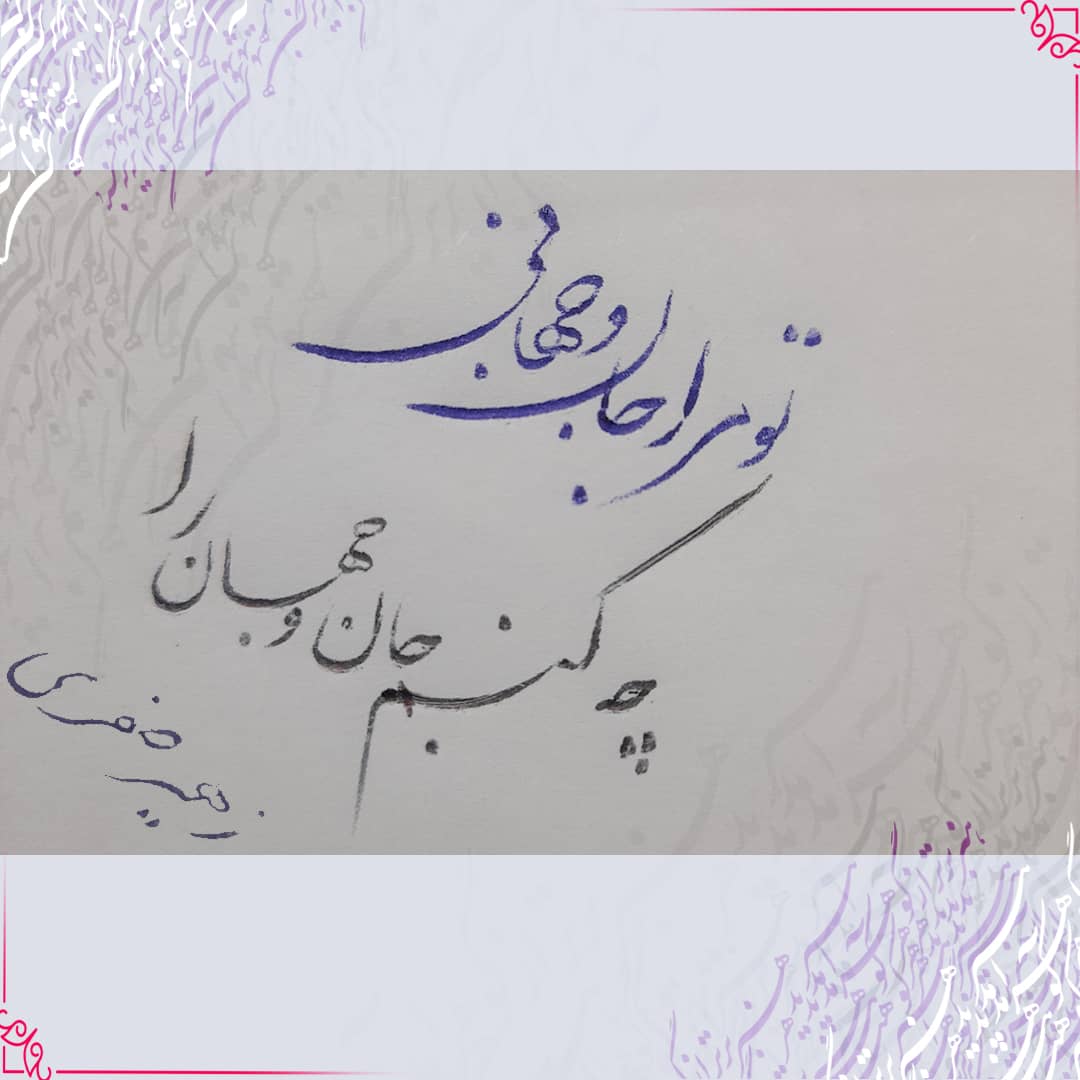 تو مرا جان و جهانی
چه کنم جان و جهان را